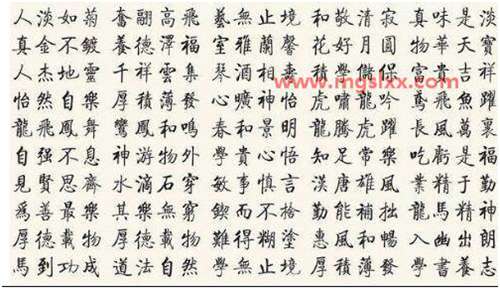 人淡如菊 奮翮高飛 藝無止境 和敬清寂 真味是淡
真金不鍍 養德澤福 室雅蘭馨 花好月圓 物華天寶
人杰地靈 千祥雲集 琴酒相壽 學儲 富貴吉祥
www.mgslxx.com
怡然自樂 厚積薄發 心曠神怡 虎嘯龍吟 鳶飛魚躍
龍飛鳳舞 鸞鳳和鳴 春和景明 龍騰虎躍 長風萬裏
自强不息 神游物外 學貴心悟 知足常樂 吃虧是福
見賢思齊 水滴石穿 敏事慎言 漢唐雄風 業精于勤
爲善最樂 其樂無窮 鍥而不捨 勤能補拙 龍馬精神
厚德載物 厚德載物 難得糊塗 惠風和暢 入幽出朗
馬到功成 道法自然 學無止境 厚積薄發 學書養志